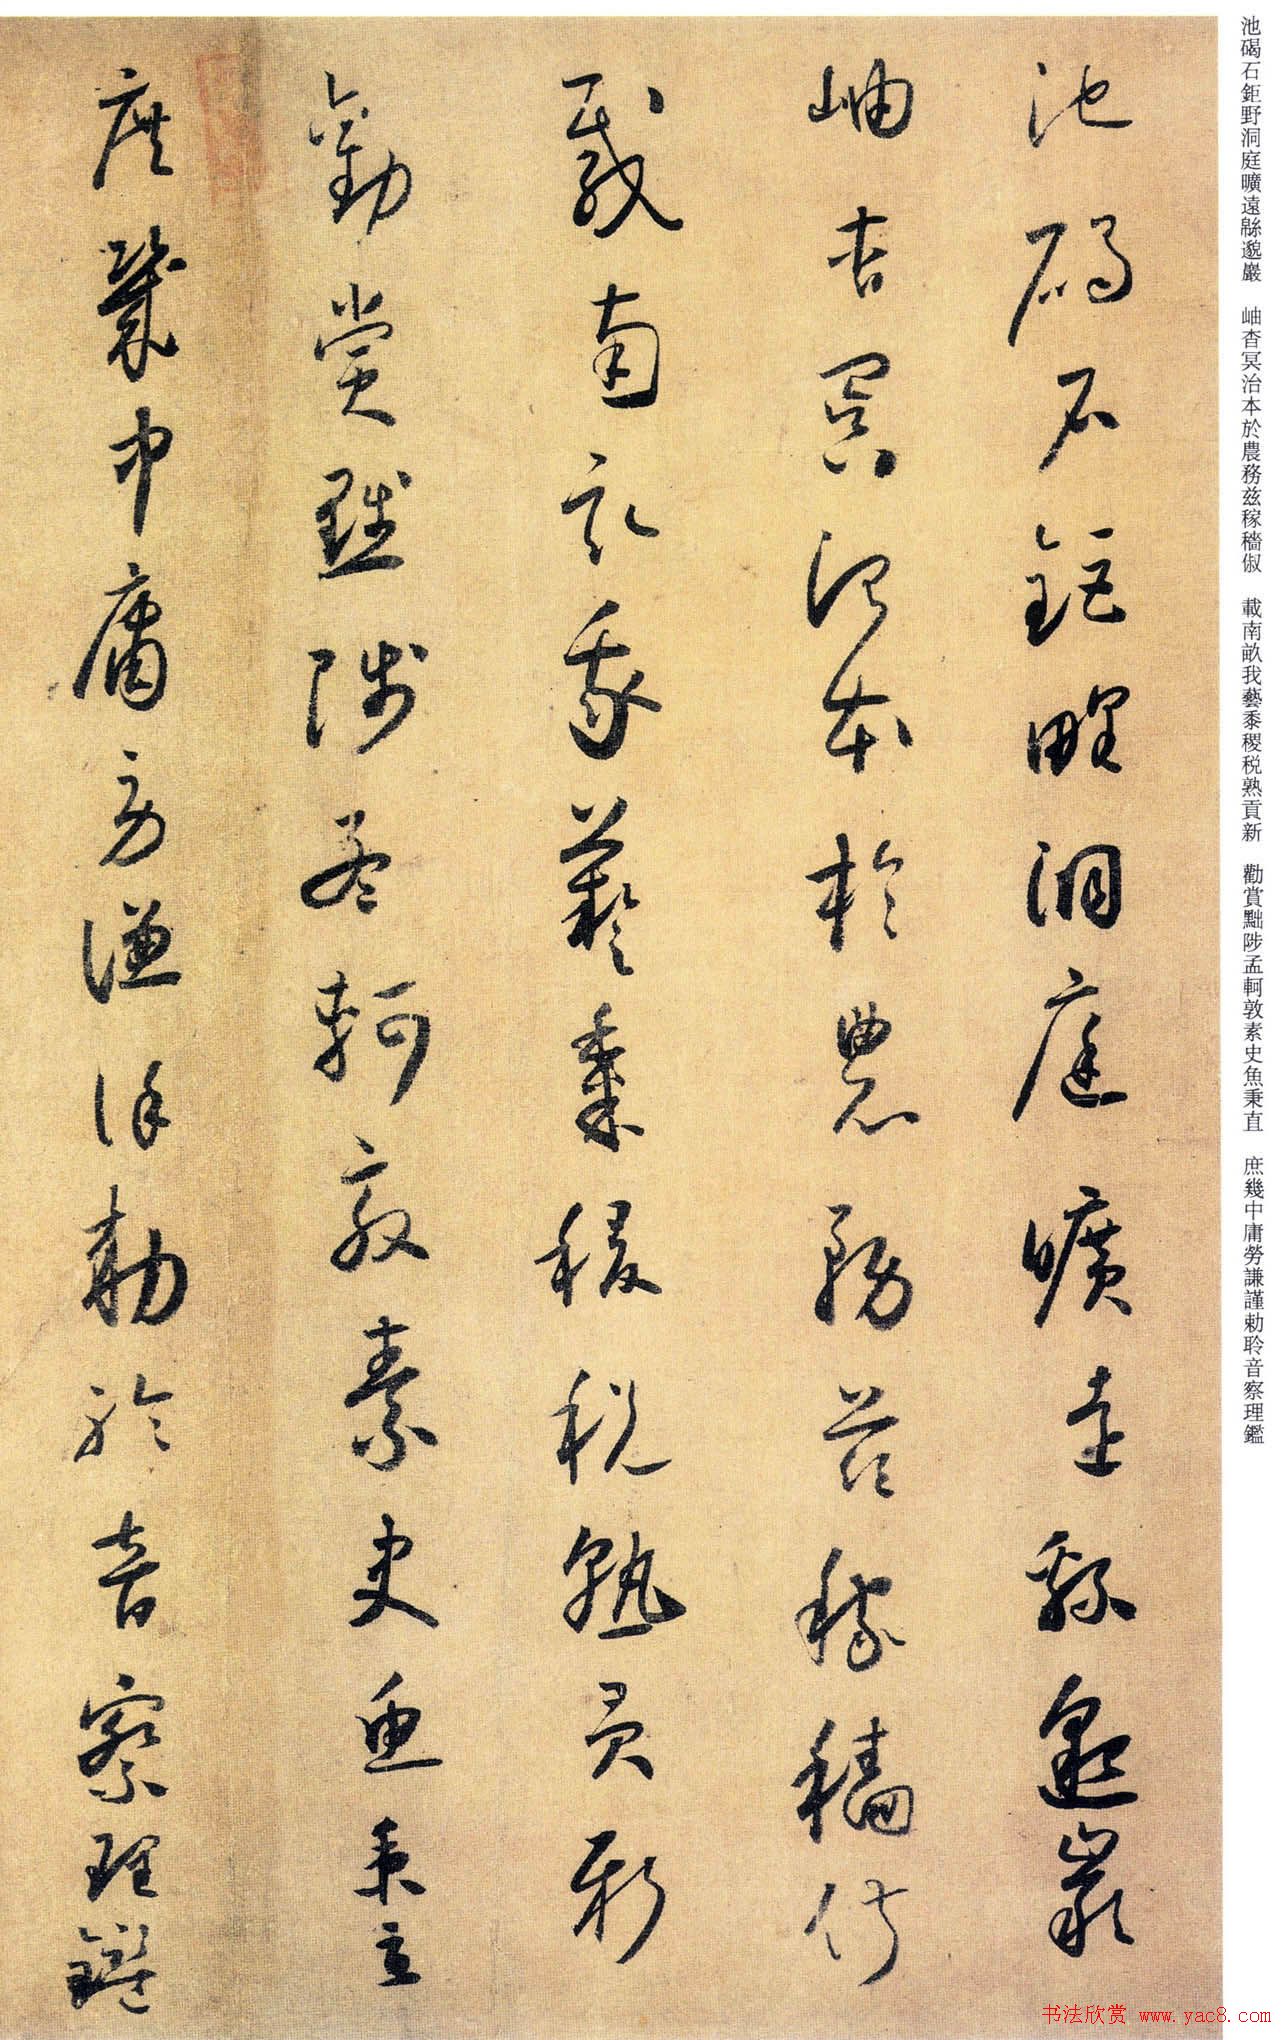 池碣石鉅野洞庭曠遠緜邈巖　岫杳冥治本於農務兹稼穡俶　載南畝我藝黍稷税熟貢新　勸賞黜陟孟軻敦素史魚秉直　庶幾中庸勞謙謹勅聆音察理鑑
池碣石鉅野洞庭曠遠緜邈巖
岫杳冥治本於農務兹稼穡俶
載南畝我藝黍稷税熟貢新
勸賞黜陟孟軻敦素史魚秉直
庶幾中庸勞謙謹勅聆音察理鑑
书法欣赏 www.yac8.com